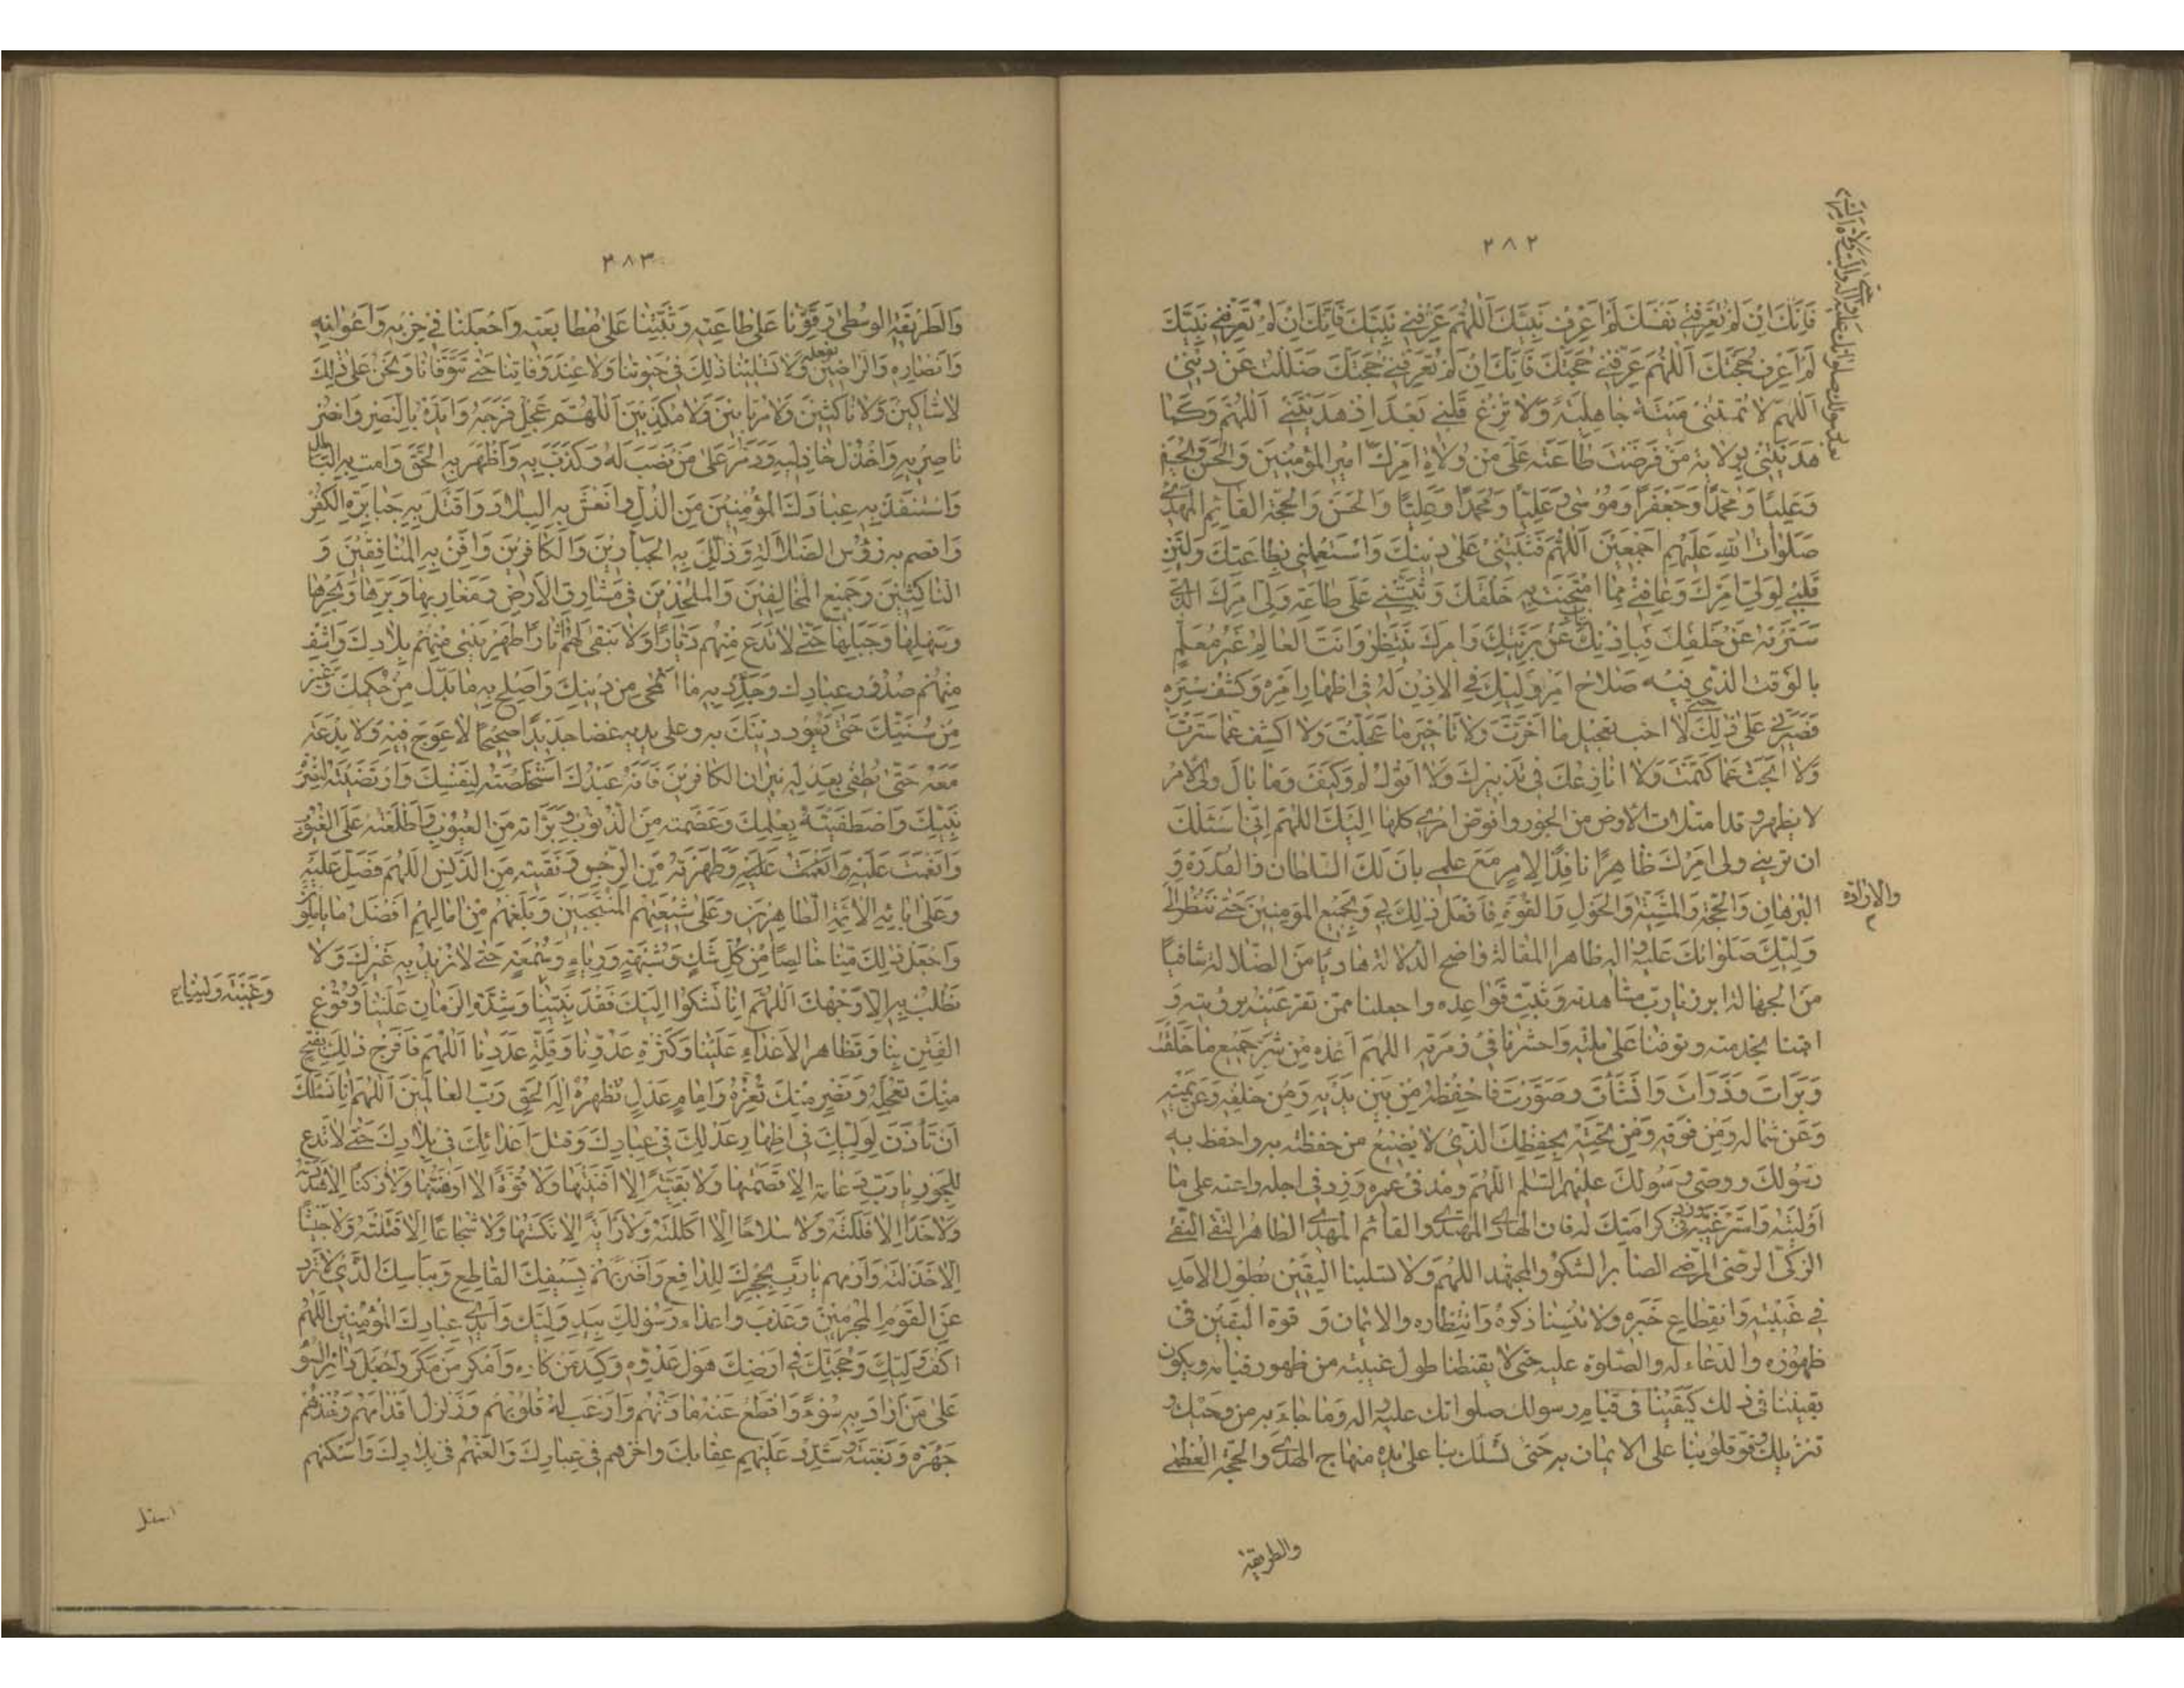 ۲۸۲
فَاِنَّكَ اِنْ لَمْ تُعَرِّفْنِی نَفْسَكَ لَمْ اَعْرِفْ نَبِیَّكَ اَللّٰهُمَّ عَرِّفْنِی نَبِیَّكَ فَاِنَّكَ اِنْ لَمْ تُعَرِّفْنِی نَبِیَّكَ
لَمْ اَعْرِفْ حُجَّتَكَ اَللّٰهُمَّ عَرِّفْنِی حُجَّتَكَ فَاِنَّكَ اِنْ لَمْ تُعَرِّفْنِی حُجَّتَكَ ضَلَلْتُ عَنْ دِینِی
اَللّٰهُمَّ لَا تُمِتْنِی مِیتَةً جَاهِلِیَّةً وَلَا تُزِغْ قَلْبِی بَعْدَ اِذْ هَدَیْتَنِی اَللّٰهُمَّ وَكَمَا
هَدَیْتَنِی بِوِلَایَةِ مَنْ فَرَضْتَ طَاعَتَهُ عَلَیَّ مِنْ وُلَاةِ اَمْرِكَ اَمِیرَ الْمُؤْمِنِینَ وَالْحَسَنَ وَالْحُسَیْنَ
وَعَلِیًّا وَمُحَمَّدًا وَجَعْفَرًا وَمُوسٰی وَعَلِیًّا وَمُحَمَّدًا وَعَلِیًّا وَالْحَسَنَ وَالْحُجَّةَ الْقَائِمَ الْمَهْدِیَّ
صَلَوَاتُ اللهِ عَلَیْهِمْ اَجْمَعِینَ اَللّٰهُمَّ فَثَبِّتْنِی عَلٰی دِینِكَ وَاسْتَعْمِلْنِی بِطَاعَتِكَ وَلَیِّنْ
قَلْبِی لِوَلِیِّ اَمْرِكَ وَعَافِنِی مِمَّا امْتَحَنْتَ بِهِ خَلْقَكَ وَثَبِّتْنِی عَلٰی طَاعَةِ وَلِیِّ اَمْرِكَ الَّذِی
سَتَرْتَهُ عَنْ خَلْقِكَ فَبِاِذْنِكَ غَابَ عَنْ بَرِیَّتِكَ وَاَمْرَكَ یَنْتَظِرُ وَاَنْتَ الْعَالِمُ غَیْرُ مُعَلَّمٍ
بِالْوَقْتِ الَّذِی فِیهِ صَلَاحُ اَمْرِ وَلِیِّكَ فِی الْاِذْنِ لَهُ فِی اِظْهَارِ اَمْرِهِ وَكَشْفِ سِتْرِهِ
فَصَبِّرْنِی عَلٰی ذٰلِكَ حَتّٰی لَا اُحِبَّ تَعْجِیلَ مَا اَخَّرْتَ وَلَا تَاْخِیرَ مَا عَجَّلْتَ وَلَا اَكْشِفَ عَمَّا سَتَرْتَ
وَلَا اَبْحَثَ عَمَّا كَتَمْتَ وَلَا اُنَازِعَكَ فِی تَدْبِیرِكَ وَلَا اَقُولَ لِمَ وَكَیْفَ وَمَا بَالُ وَلِیِّ الْاَمْرِ
لَا یَظْهَرُ وَقَدِ امْتَلَاَتِ الْاَرْضُ مِنَ الْجَوْرِ وَاُفَوِّضَ اُمُورِی كُلَّهَا اِلَیْكَ اَللّٰهُمَّ اِنِّی اَسْئَلُكَ
اَنْ تُرِیَنِی وَلِیَّ اَمْرِكَ ظَاهِرًا نَافِذَ الْاَمْرِ مَعَ عِلْمِی بِاَنَّ لَكَ السُّلْطَانَ وَالْقُدْرَةَ وَ
الْبُرْهَانَ وَالْحُجَّةَ وَالْمَشِیَّةَ وَالْحَوْلَ وَالْقُوَّةَ فَافْعَلْ ذٰلِكَ بِی وَبِجَمِیعِ الْمُؤْمِنِینَ حَتّٰی نَنْظُرَ اِلٰی
والارادة
وَلِیِّكَ صَلَوَاتُكَ عَلَیْهِ وَاٰلِهِ ظَاهِرَ الْمَقَالَةِ وَاضِحَ الدَّلَالَةِ هَادِیًا مِنَ الضَّلَالَةِ شَافِیًا
مِنَ الْجَهَالَةِ اَبْرِزْ یَا رَبِّ مُشَاهَدَتَهُ وَثَبِّتْ قَوَاعِدَهُ وَاجْعَلْنَا مِمَّنْ تَقَرُّ عَیْنُهُ بِرُؤْیَتِهِ وَ
اَقِمْنَا بِخِدْمَتِهِ وَتَوَفَّنَا عَلٰی مِلَّتِهِ وَاحْشُرْنَا فِی زُمْرَتِهِ اَللّٰهُمَّ اَعِذْهُ مِنْ شَرِّ جَمِیعِ مَا خَلَقْتَ
وَبَرَاْتَ وَذَرَاْتَ وَاَنْشَاْتَ وَصَوَّرْتَ فَاحْفَظْهُ مِنْ بَیْنِ یَدَیْهِ وَمِنْ خَلْفِهِ وَعَنْ یَمِینِهِ
وَعَنْ شِمَالِهِ وَمِنْ فَوْقِهِ وَمِنْ تَحْتِهِ بِحِفْظِكَ الَّذِی لَا یَضِیعُ مَنْ حَفِظْتَهُ بِهِ وَاحْفَظْ بِهِ
رَسُولَكَ وَوَصِیَّ رَسُولِكَ عَلَیْهِمُ السَّلَامُ اَللّٰهُمَّ وَمُدَّ فِی عُمْرِهِ وَزِدْ فِی اَجَلِهِ وَاَعِنْهُ عَلٰی مَا
اَوْلَیْتَهُ وَاسْتَرْعَیْتَهُ وَزِدْ فِی كَرَامَتِكَ لَهُ فَاِنَّهُ الْهَادِی الْمُهْتَدِی وَالْقَائِمُ الْمَهْدِیُّ الطَّاهِرُ التَّقِیُّ النَّقِیُّ
الزَّكِیُّ الرَّضِیُّ الْمَرْضِیُّ الصَّابِرُ الشَّكُورُ الْمُجْتَهِدُ اَللّٰهُمَّ وَلَا تَسْلُبْنَا الْیَقِینَ لِطُولِ الْاَمَدِ
فِی غَیْبَتِهِ وَانْقِطَاعِ خَبَرِهِ وَلَا تُنْسِنَا ذِكْرَهُ وَانْتِظَارَهُ وَالْاِیمَانَ وَ قُوَّةَ الْیَقِینِ فِی
ظُهُورِهِ وَالدُّعَاءَ لَهُ وَالصَّلٰوةَ عَلَیْهِ حَتّٰی لَا یُقَنِّطَنَا طُولُ غَیْبَتِهِ مِنْ ظُهُورِ قِیَامِهِ وَیَكُونَ
یَقِینُنَا فِی ذٰلِكَ كَیَقِینِنَا فِی قِیَامِ رَسُولِكَ صَلَوَاتُكَ عَلَیْهِ وَاٰلِهِ وَمَا جَاءَ بِهِ مِنْ وَحْیِكَ وَ
تَنْزِیلِكَ وَقَوِّ قُلُوبَنَا عَلَی الْاِیمَانِ بِهِ حَتّٰی تَسْلُكَ بِنَا عَلٰی یَدِهِ مِنْهَاجَ الْهُدٰی وَالْحُجَّةَ الْعُظْمٰی
والطریقة
۲۸۳
وَالطَّرِیقَةَ الْوُسْطٰی وَقَوِّنَا عَلٰی طَاعَتِهِ وَثَبِّتْنَا عَلٰی مُطَابَعَتِهِ وَاجْعَلْنَا فِی حِزْبِهِ وَاَعْوَانِهِ
وَاَنْصَارِهِ وَالرَّاضِینَ بفعله وَلَا تَسْلُبْنَا ذٰلِكَ فِی حَیٰوتِنَا وَلَا عِنْدَ وَفَاتِنَا حَتّٰی تَتَوَفَّانَا وَنَحْنُ عَلٰی ذٰلِكَ
لَا شَاكِّینَ وَلَا نَاكِثِینَ وَلَا مُرْتَابِینَ وَلَا مُكَذِّبِینَ اَللّٰهُمَّ عَجِّلْ فَرَجَهُ وَاَیِّدْهُ بِالنَّصْرِ وَانْصُرْ
نَاصِرِیهِ وَاخْذُلْ خَاذِلِیهِ وَدَمِّرْ عَلٰی مَنْ نَصَبَ لَهُ وَكَذَّبَ بِهِ وَاَظْهِرْ بِهِ الْحَقَّ وَاَمِتْ بِهِ الْبَاطِلَ
وَاسْتَنْقِذْ بِهِ عِبَادَكَ الْمُؤْمِنِینَ مِنَ الذُّلِّ وَانْعَشْ بِهِ الْبِلَادَ وَاقْتُلْ بِهِ جَبَابِرَةَ الْكُفْرِ
وَاقْصِمْ بِهِ رُؤُسَ الضَّلَالَةِ وَذَلِّلْ بِهِ الْجَبَّارِینَ وَالْكَافِرِینَ وَاَفْنِ بِهِ الْمُنَافِقِینَ وَ
النَّاكِثِینَ وَجَمِیعَ الْمُخَالِفِینَ وَالْمُلْحِدِینَ فِی مَشَارِقِ الْاَرْضِ وَمَغَارِبِهَا وَبَرِّهَا وَبَحْرِهَا
وَسَهْلِهَا وَجَبَلِهَا حَتّٰی لَا تَدَعَ مِنْهُمْ دَیَّارًا وَلَا تُبْقِیَ لَهُمْ اٰثَارًا طَهِّرْ مِنْهُمْ بِلَادَكَ وَاشْفِ
مِنْهُمْ صُدُورَ عِبَادِكَ وَجَدِّدْ بِهِ مَا امْتَحٰی مِنْ دِینِكَ وَاَصْلِحْ بِهِ مَا بُدِّلَ مِنْ حُكْمِكَ وَغُیِّرَ
مِنْ سُنَّتِكَ حَتّٰی یَعُودَ دِینُكَ بِهِ وَعَلٰی یَدَیْهِ غَضًّا جَدِیدًا صَحِیحًا لَا عِوَجَ فِیهِ وَلَا بِدْعَةَ
مَعَهُ حَتّٰی تُطْفِئَ بِعَدْلِهِ نِیرَانَ الْكَافِرِینَ فَاِنَّهُ عَبْدُكَ اسْتَخْلَصْتَهُ لِنَفْسِكَ وَارْتَضَیْتَهُ لِنَصْرِ
نَبِیِّكَ وَاصْطَفَیْتَهُ بِعِلْمِكَ وَعَصَمْتَهُ مِنَ الذُّنُوبِ وَبَرَّاْتَهُ مِنَ الْعُیُوبِ وَاَطْلَعْتَهُ عَلَی الْغُیُوبِ
وَاَنْعَمْتَ عَلَیْهِ وَطَهَّرْتَهُ مِنَ الرِّجْسِ وَنَقَّیْتَهُ مِنَ الدَّنَسِ اَللّٰهُمَّ فَصَلِّ عَلَیْهِ
وَعَلٰی اٰبَائِهِ الْاَئِمَّةِ الطَّاهِرِینَ وَعَلٰی شِیعَتِهِمُ الْمُنْتَجَبِینَ وَبَلِّغْهُمْ مِنْ اٰمَالِهِمْ اَفْضَلَ مَا یَاْمُلُونَ
وَاجْعَلْ ذٰلِكَ مِنَّا خَالِصًا مِنْ كُلِّ شَكٍّ وَشُبْهَةٍ وَرِیَاءٍ وَسُمْعَةٍ حَتّٰی لَا نُرِیدَ بِهِ غَیْرَكَ وَلَا
نَطْلُبَ بِهِ اِلَّا وَجْهَكَ اَللّٰهُمَّ اِنَّا نَشْكُوا اِلَیْكَ فَقْدَ نَبِیِّنَا وَشِدَّةَ الزَّمَانِ عَلَیْنَا وَوُقُوعَ
وَغَیْبَةَ وَلِیِّنَا
الْفِتَنِ بِنَا وَتَظَاهُرَ الْاَعْدَاءِ عَلَیْنَا وَكَثْرَةَ عَدُوِّنَا وَقِلَّةَ عَدَدِنَا اَللّٰهُمَّ فَافْرُجْ ذٰلِكَ بِفَتْحٍ
مِنْكَ تُعَجِّلُهُ وَنَصْرٍ مِنْكَ تُعِزُّهُ وَاِمَامِ عَدْلٍ تُظْهِرُهُ اِلٰهَ الْحَقِّ رَبَّ الْعَالَمِینَ اَللّٰهُمَّ اِنَّا نَسْئَلُكَ
اَنْ تَاْذَنَ لِوَلِیِّكَ فِی اِظْهَارِ عَدْلِكَ فِی عِبَادِكَ وَقَتْلِ اَعْدَائِكَ فِی بِلَادِكَ حَتّٰی لَا تَدَعَ
لِلْجَوْرِ یَا رَبِّ دِعَامَةً اِلَّا قَصَمْتَهَا وَلَا بَقِیَّةً اِلَّا اَفْنَیْتَهَا وَلَا قُوَّةً اِلَّا اَوْهَنْتَهَا وَلَا رُكْنًا اِلَّا هَدَدْتَهُ
وَلَا حَدًّا اِلَّا فَلَلْتَهُ وَلَا سِلَاحًا اِلَّا اَكْلَلْتَهُ وَلَا رَایَةً اِلَّا نَكَّسْتَهَا وَلَا شُجَاعًا اِلَّا قَتَلْتَهُ وَلَا جَیْشًا
اِلَّا خَذَلْتَهُ وَارْمِهِمْ یَا رَبِّ بِحَجَرِكَ الدَّامِغِ وَاضْرِبْهُمْ بِسَیْفِكَ الْقَاطِعِ وَبَاْسِكَ الَّذِی لَا تَرُدُّهُ
عَنِ الْقَوْمِ الْمُجْرِمِینَ وَعَذِّبْ اَعْدَاءَ رَسُولِكَ بِیَدِ وَلِیِّكَ وَاَیْدِی عِبَادِكَ الْمُؤْمِنِینَ اَللّٰهُمَّ
اكْفِ وَلِیَّكَ وَحُجَّتَكَ فِی اَرْضِكَ هَوْلَ عَدُوِّهِ وَكَیْدَ مَنْ كَادَهُ وَامْكُرْ مَنْ مَكَرَ وَاجْعَلْ دَائِرَةَ السَّوْءِ
عَلٰی مَنْ اَرَادَ بِهِ سُوْءً وَاقْطَعْ عَنْهُ مَادَّتَهُمْ وَارْعَبْ لَهُ قُلُوبَهُمْ وَزَلْزِلْ اَقْدَامَهُمْ وَخُذْهُمْ
جَهْرَةً وَبَغْتَةً وَشَدِّدْ عَلَیْهِمْ عِقَابَكَ وَاَخْزِهِمْ فِی عِبَادِكَ وَالْعَنْهُمْ فِی بِلَادِكَ وَاَسْكِنْهُمْ
اسفل